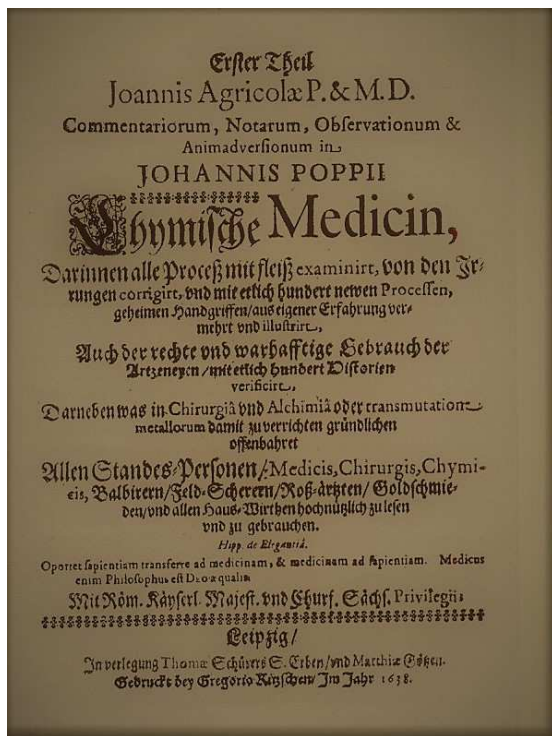 Erster Theil
Joannis Agricolæ P. & M. D.
Commentariorum, Notarum, Observationum &
Animadversionum in
JOHANNIS POPPII
Chymische Medicin,
Darinnen alle Proceß mit fleiß examinirt, von den Jr-
rungen corrigirt, vnd mit etlich hundert newen Processen,
geheimen Handgriffen/aus eigener Erfahrung ver-
mehrt vnd illustrirt,
Auch der rechte vnd warhafftige Gebrauch der
Artzeneyen/mit etlich hundert Historien
verificirt,
Darneben was in Chirurgiâ vnd Alchimiâ oder transmutatione
metallorum damit zu verrichten gründlichen
offenbahret
Allen Standes-Personen/Medicis, Chirurgis, Chymi-
cis, Balbirern/Feld-Scherern/Roß-ärtzten/Goldschmie-
den/vnd allen Haus-Wirthen hochnützlich zu lesen
vnd zu gebrauchen.
Hipp. de Elegantiâ.
Oportet sapientiam transferre ad medicinam, & medicinam ad sapientiam. Medicus
enim Philosophus est Deo æqualis
Mit Röm. Käyserl. Majest. vnd Churf. Sächs. Privilegiis
Leipzig/
Jn verlegung Thomæ Schürers S. Erben/vnd Matthiæ Götzen.
Gedruckt bey Gregorio Ritzschen/Jm Jahr 1638.